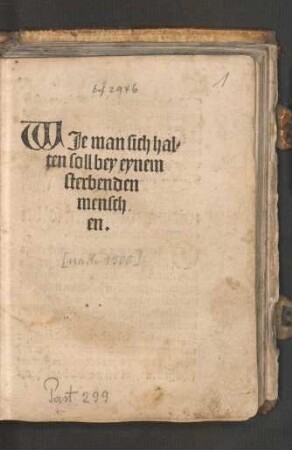 Ef 2946
1
WIe man sich hal-
ten soll bey eynem
sterbenden
mensch
en.
[nach 1500]
Past 299